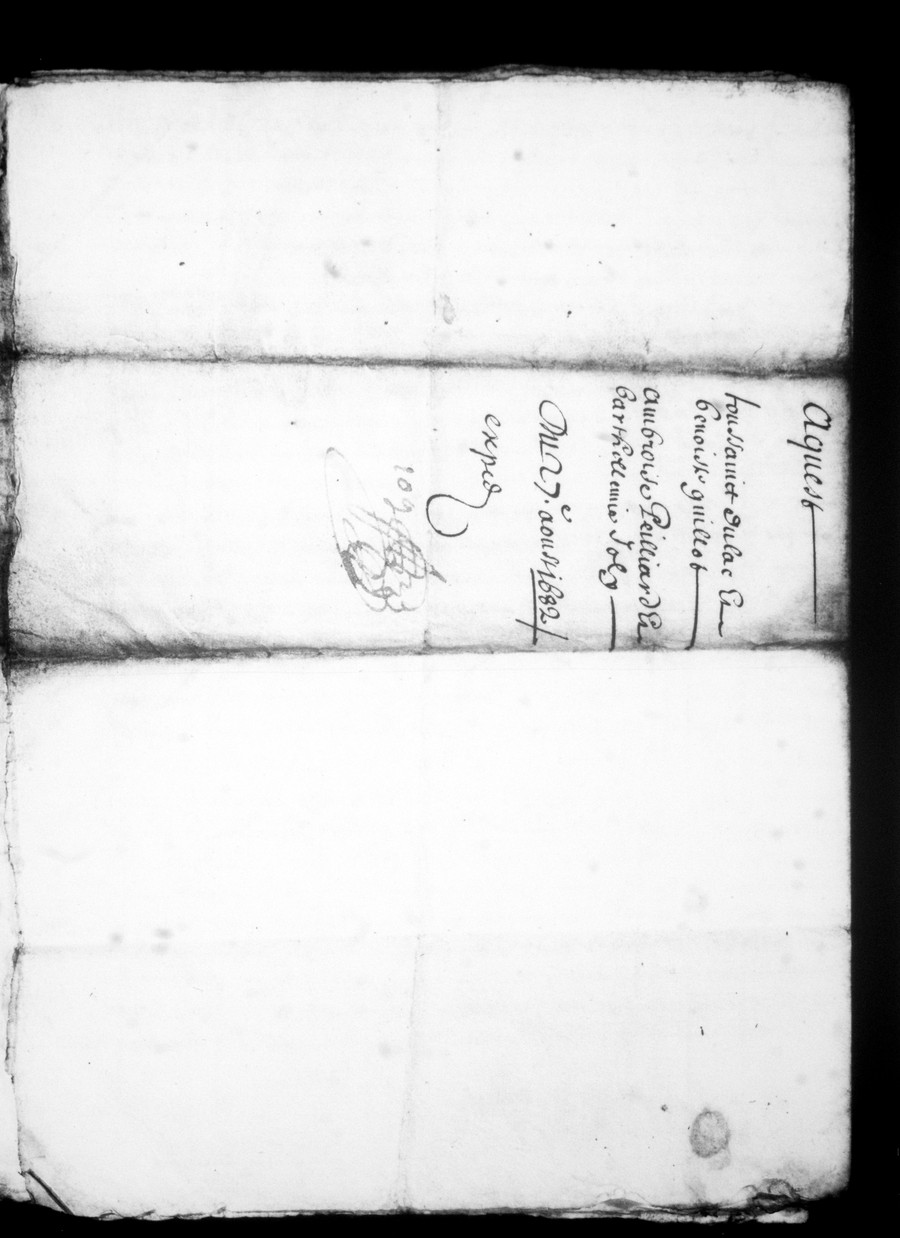 Aquest
toussainct dulac Et
benoiste guillot
ambroise Peilliard Et
barthellemie Joly
Du 27.e aoust 1682
exped
109